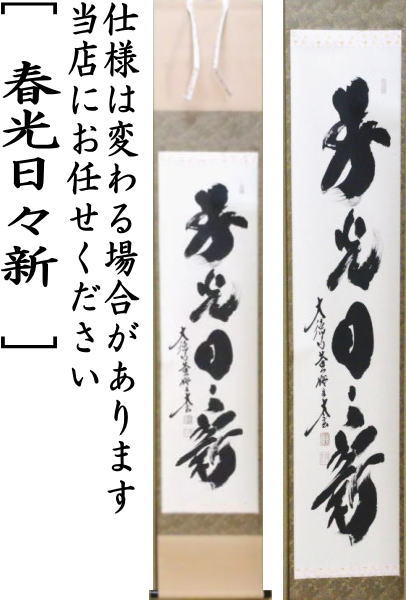 仕様は変わる場合があります
当店にお任せください
［春光日々新］
春光日々新
春光日々新